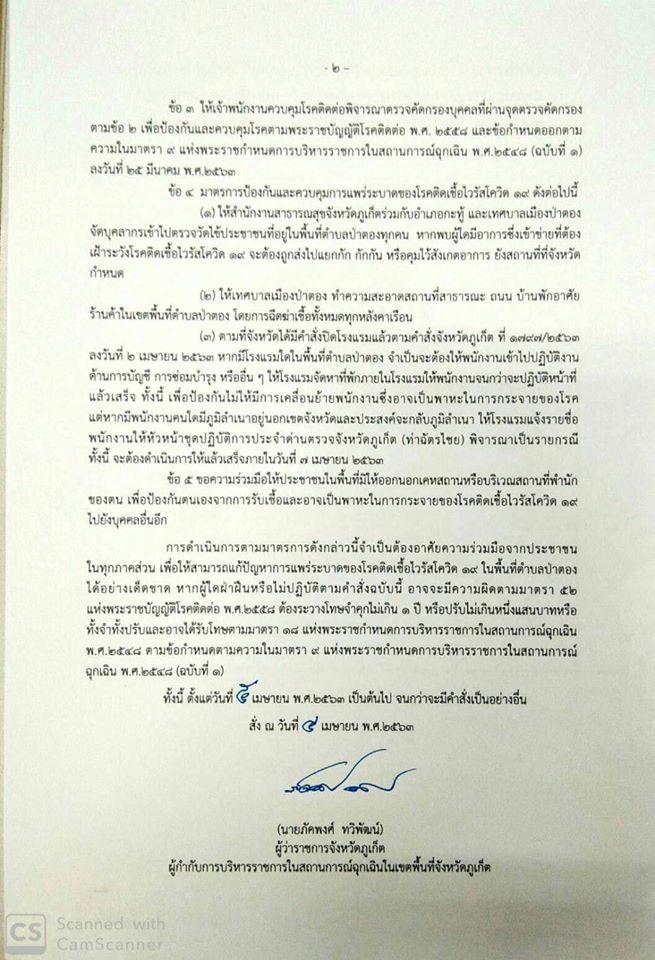 - ๒ -
ข้อ ๓ ให้เจ้าพนักงานควบคุมโรคติดต่อพิจารณาตรวจคัดกรองบุคคลที่ผ่านจุดตรวจคัดกรอง
ตามข้อ ๒ เพื่อป้องกันและควบคุมโรคตามพระราชบัญญัติโรคติดต่อ พ.ศ. ๒๕๕๘ และข้อกำหนดออกตาม
ความในมาตรา ๙ แห่งพระราชกำหนดการบริหารราชการในสถานการณ์ฉุกเฉิน พ.ศ.๒๕๔๘ (ฉบับที่ ๑)
ลงวันที่ ๒๕ มีนาคม พ.ศ.๒๕๖๓
ข้อ ๔ มาตรการป้องกันและควบคุมการแพร่ระบาดของโรคติดเชื้อไวรัสโควิด ๑๙ ดังต่อไปนี้
(๑) ให้สำนักงานสาธารณสุขจังหวัดภูเก็ตร่วมกับอำเภอกะทู้ และเทศบาลเมืองป่าตอง
จัดบุคลากรเข้าไปตรวจวัดไข้ประชาชนที่อยู่ในพื้นที่ตำบลป่าตองทุกคน หากพบผู้ใดมีอาการซึ่งเข้าข่ายที่ต้อง
เฝ้าระวังโรคติดเชื้อไวรัสโควิด ๑๙ จะต้องถูกส่งไปแยกกัก กักกัน หรือคุมไว้สังเกตอาการ ยังสถานที่ที่จังหวัด
กำหนด
(๒) ให้เทศบาลเมืองป่าตอง ทำความสะอาดสถานที่สาธารณะ ถนน บ้านพักอาศัย
ร้านค้าในเขตพื้นที่ตำบลป่าตอง โดยการฉีดฆ่าเชื้อทั้งหมดทุกหลังคาเรือน
(๓) ตามที่จังหวัดได้มีคำสั่งปิดโรงแรมแล้วตามคำสั่งจังหวัดภูเก็ต ที่ ๑๗๙๗/๒๕๖๓
ลงวันที่ ๒ เมษายน ๒๕๖๓ หากมีโรงแรมใดในพื้นที่ตำบลป่าตอง จำเป็นจะต้องให้พนักงานเข้าไปปฏิบัติงาน
ด้านการบัญชี การซ่อมบำรุง หรืออื่น ๆ ให้โรงแรมจัดหาที่พักภายในโรงแรมให้พนักงานจนกว่าจะปฏิบัติหน้าที่
แล้วเสร็จ ทั้งนี้ เพื่อป้องกันไม่ให้มีการเคลื่อนย้ายพนักงานซึ่งอาจเป็นพาหะในการกระจายของโรค
แต่หากมีพนักงานคนใดมีภูมิลำเนาอยู่นอกเขตจังหวัดและประสงค์จะกลับภูมิลำเนา ให้โรงแรมแจ้งรายชื่อ
พนักงานให้หัวหน้าชุดปฏิบัติการประจำด่านตรวจจังหวัดภูเก็ต (ท่าฉัตรไชย) พิจารณาเป็นรายกรณี
ทั้งนี้ จะต้องดำเนินการให้แล้วเสร็จภายในวันที่ ๗ เมษายน ๒๕๖๓
ข้อ ๕ ขอความร่วมมือให้ประชาชนในพื้นที่มิให้ออกนอกเคหสถานหรือบริเวณสถานที่พำนัก
ของตน เพื่อป้องกันตนเองจากการรับเชื้อและอาจเป็นพาหะในการกระจายของโรคติดเชื้อไวรัสโควิด ๑๙
ไปยังบุคคลอื่นอีก
การดำเนินการตามมาตรการดังกล่าวนี้จำเป็นต้องอาศัยความร่วมมือจากประชาชน
ในทุกภาคส่วน เพื่อให้สามารถแก้ปัญหาการแพร่ระบาดของโรคติดเชื้อไวรัสโควิด ๑๙ ในพื้นที่ตำบลป่าตอง
ได้อย่างเด็ดขาด หากผู้ใดฝ่าฝืนหรือไม่ปฏิบัติตามคำสั่งฉบับนี้ อาจจะมีความผิดตามมาตรา ๕๒
แห่งพระราชบัญญัติโรคติดต่อ พ.ศ.๒๕๕๘ ต้องระวางโทษจำคุกไม่เกิน ๑ ปี หรือปรับไม่เกินหนึ่งแสนบาทหรือ
ทั้งจำทั้งปรับและอาจได้รับโทษตามมาตรา ๑๘ แห่งพระราชกำหนดการบริหารราชการในสถานการณ์ฉุกเฉิน
พ.ศ.๒๕๔๘ ตามข้อกำหนดตามความในมาตรา ๙ แห่งพระราชกำหนดการบริหารราชการในสถานการณ์
ฉุกเฉิน พ.ศ.๒๕๔๘ (ฉบับที่ ๑)
ทั้งนี้ ตั้งแต่วันที่ ๕ เมษายน พ.ศ.๒๕๖๓ เป็นต้นไป จนกว่าจะมีคำสั่งเป็นอย่างอื่น
สั่ง ณ วันที่ ๔ เมษายน พ.ศ.๒๕๖๓
(นายภัคพงศ์ ทวิพัฒน์)
ผู้ว่าราชการจังหวัดภูเก็ต
ผู้กำกับการบริหารราชการในสถานการณ์ฉุกเฉินในเขตพื้นที่จังหวัดภูเก็ต
CS Scanned with
CamScanner